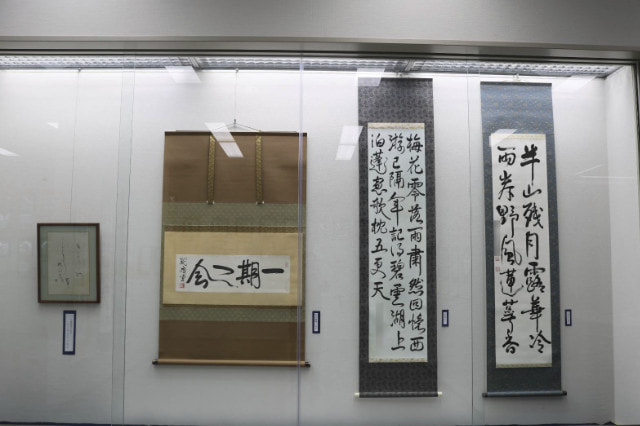 半山残月露華冷
兩岸野風蓮萼香
梅花零落雨肅然因憶西
游已隔年記得碧雲湖上
泊蓬窓欹枕五更天
一期一会